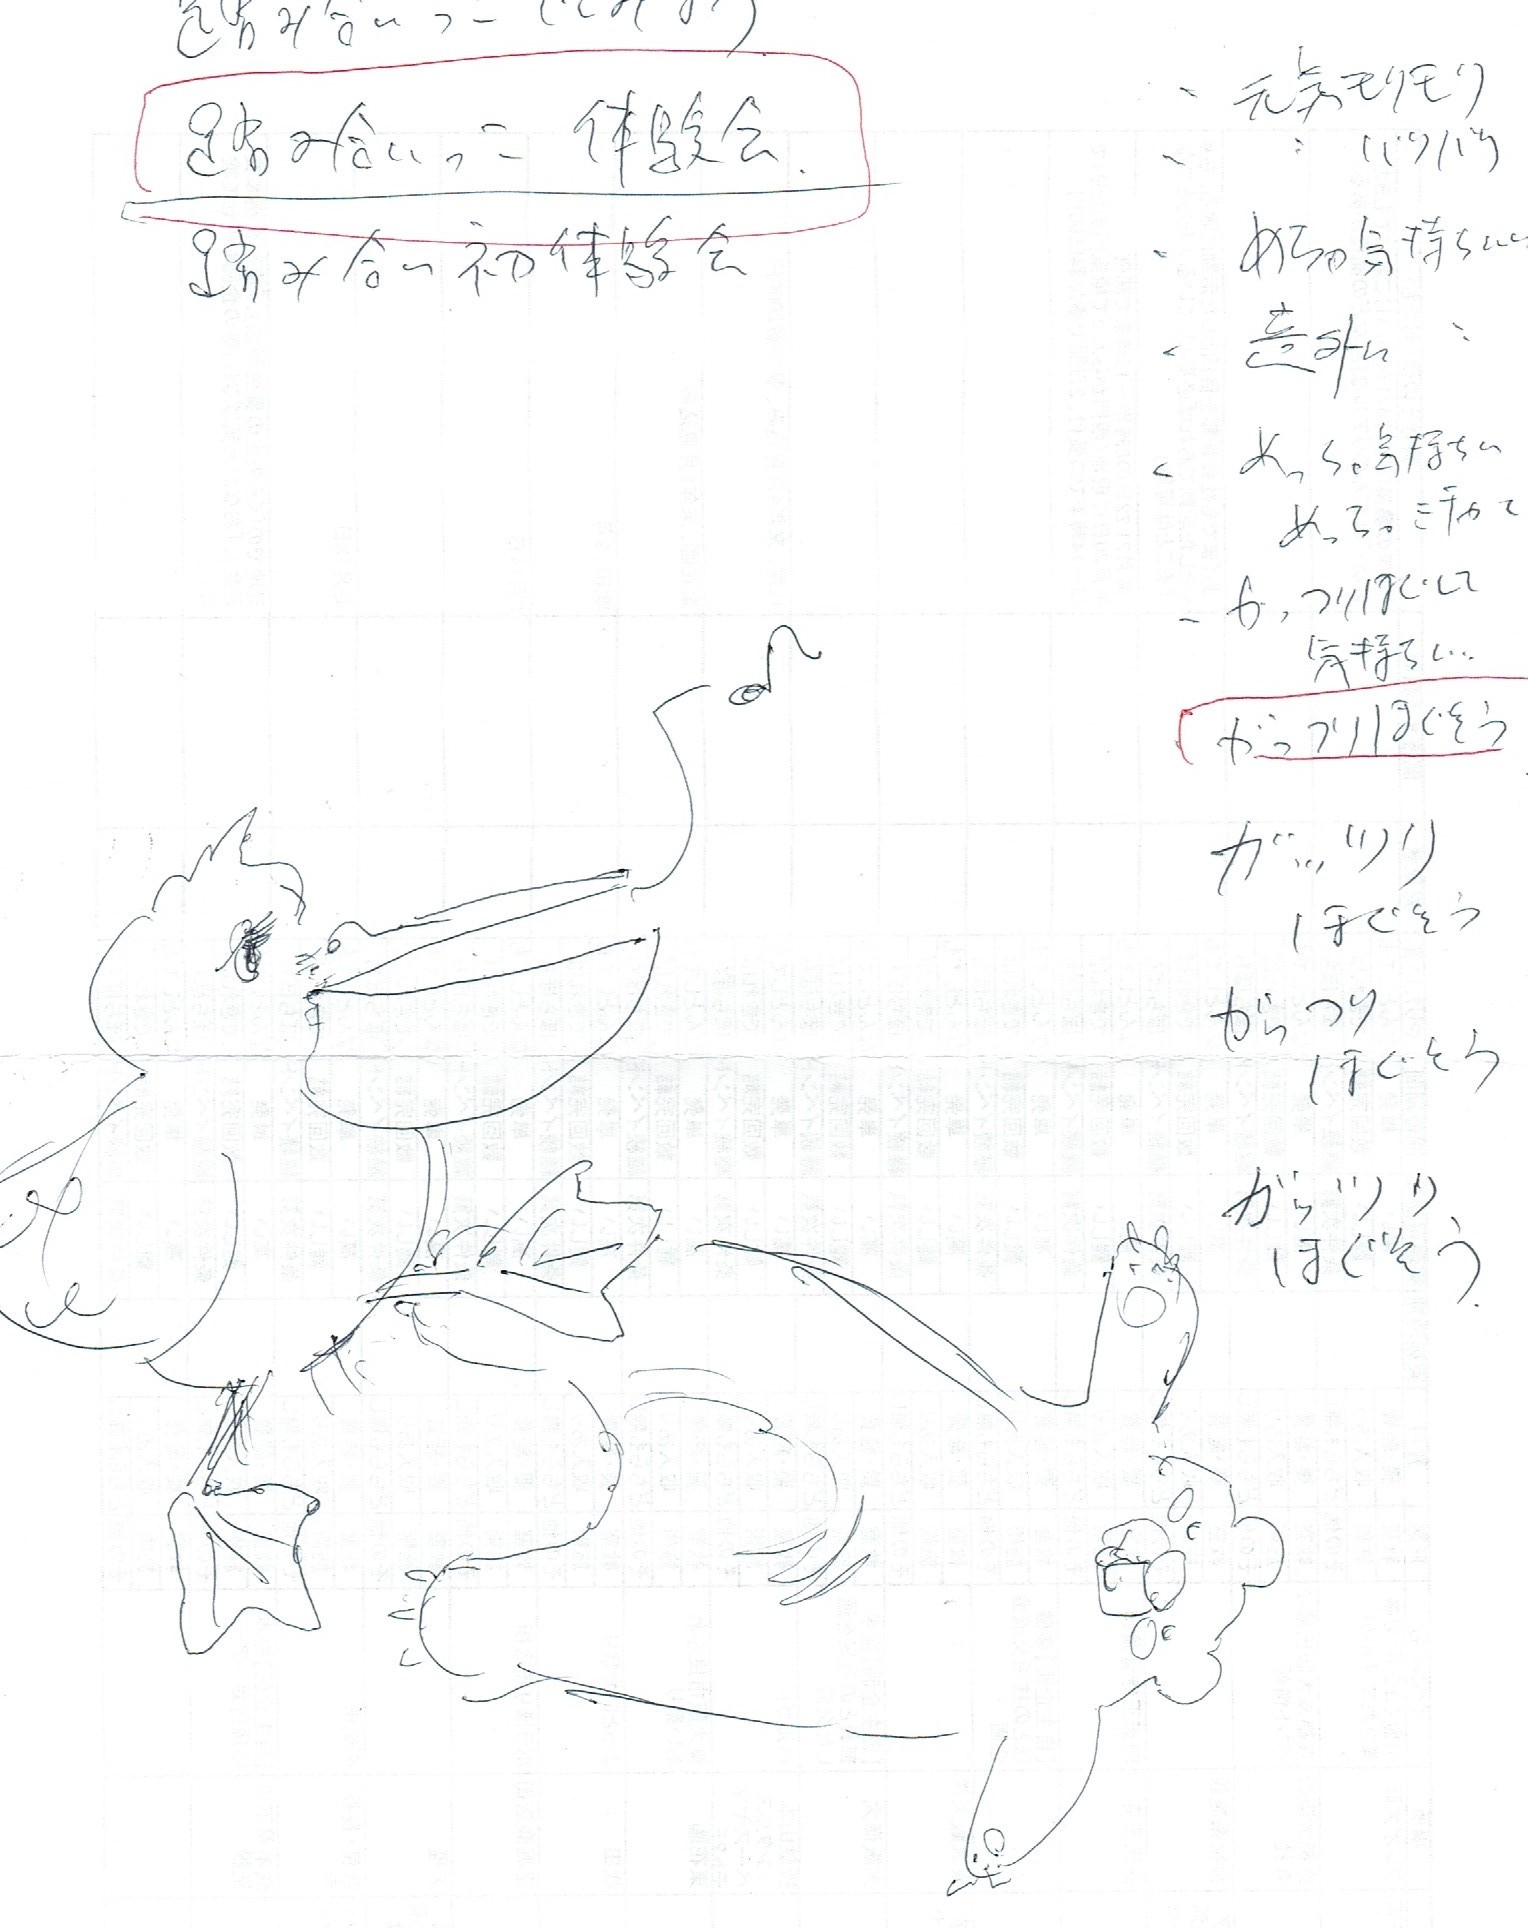 踏み合いっこしてみよう
踏み合いっこ 体験会
踏み合い初体験会
元気モリモリ
〃 バリバリ
めちゃ気持ちいい
意外に 〃
めっちゃ気持ちい
めっちゃ
がっつりほぐして
気持ちい…
がっつりほぐそう
ガッツリ
ほぐそう
がっつり
ほぐそう
がっツリ
ほぐそう